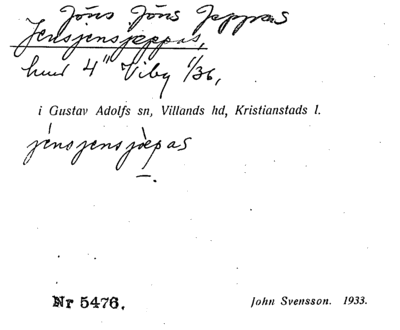 Jöns Jöns Jeppas
Jensjensjeppas,
hmd 4" Viby 1/36,
i Gustav Adolfs sn, Villands hd, Kristianstads l.
jènsjensjèpas
Nr 5476.
John Svensson. 1933.